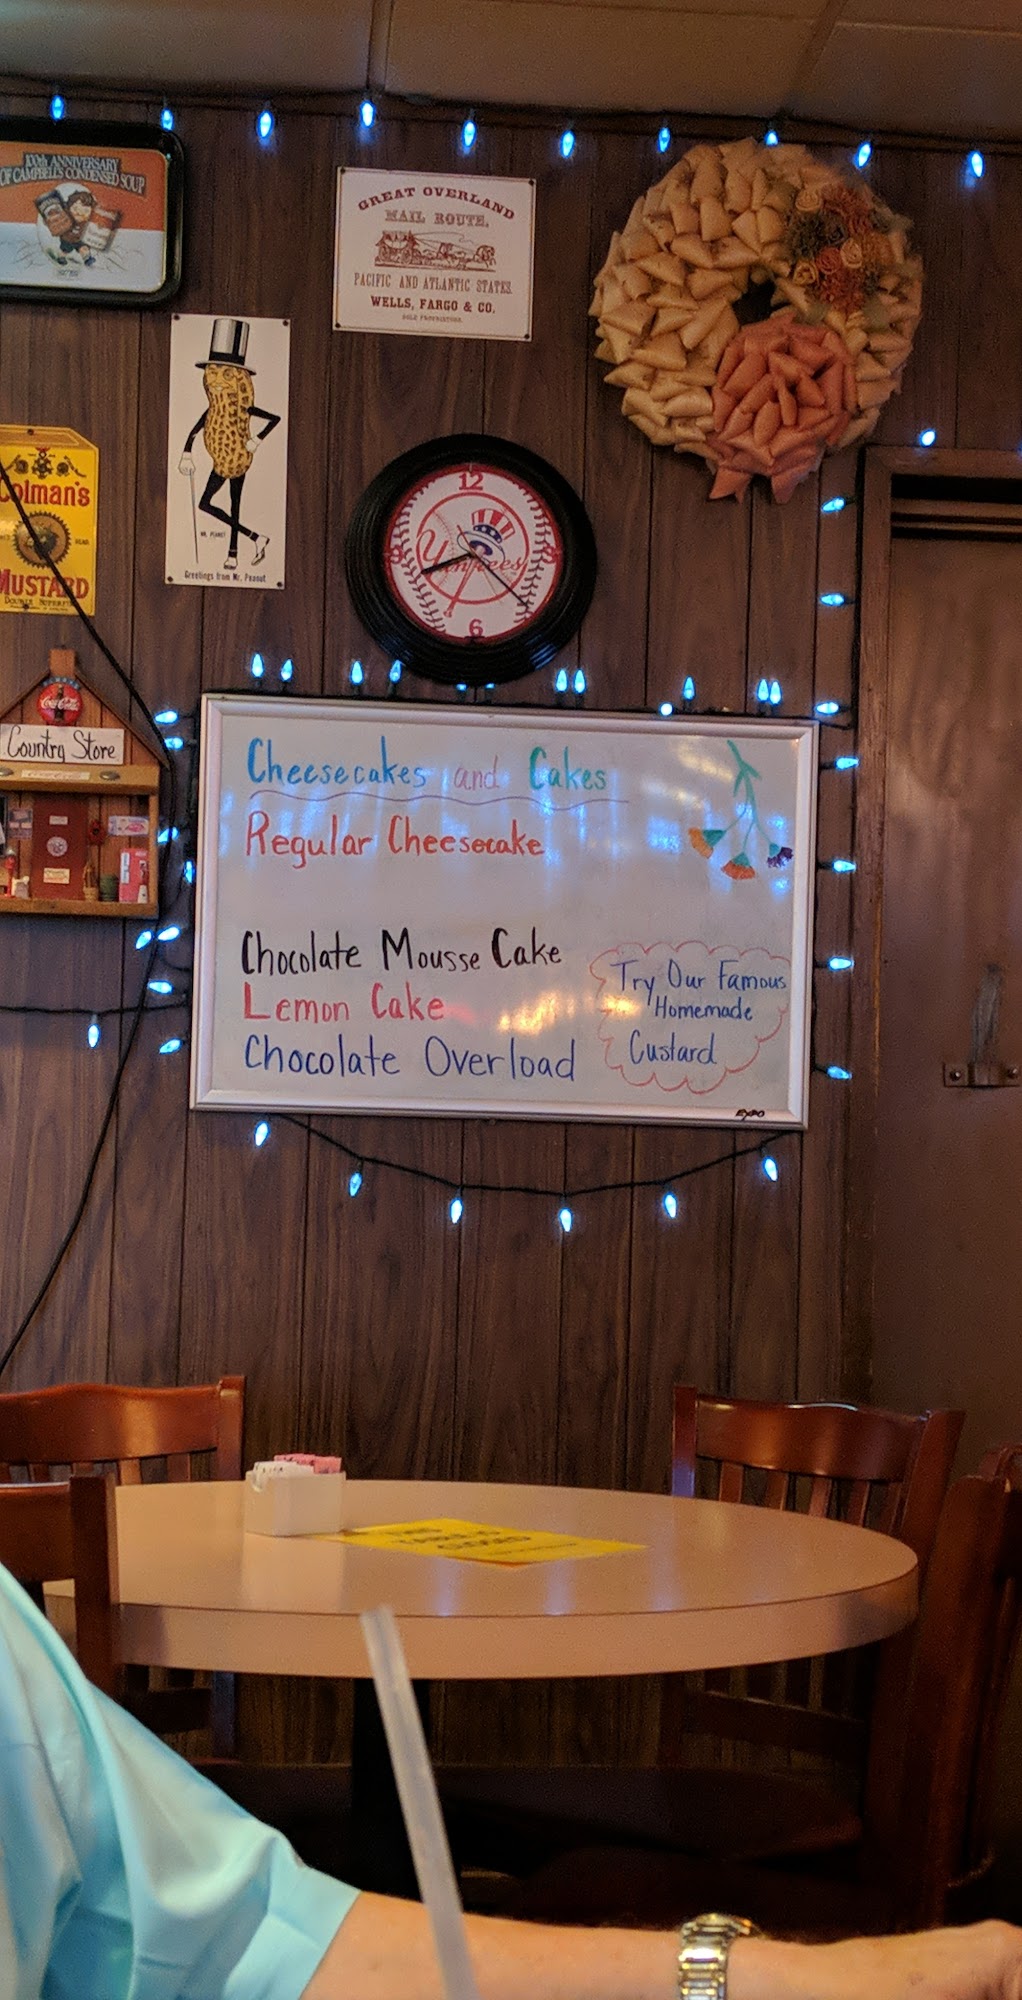 100th ANNIVERSARY
OF CAMPBELL'S CONDENSED SOUP
GREAT OVERLAND
MAIL ROUTE.
PACIFIC AND ATLANTIC STATES.
WELLS, FARGO & CO.
SOLE PROPRIETORS.
MR. PEANUT
Greetings from Mr. Peanut
Colman's
MUSTARD
DOUBLE SUPERFINE
12
Yankees
6
Coca-Cola
Country Store
Cheesecakes and Cakes
Regular Cheesecake
Chocolate Mousse Cake
Lemon Cake
Chocolate Overload
Try Our Famous
Homemade
Custard
EXPO
TABLE IS
CLOSED